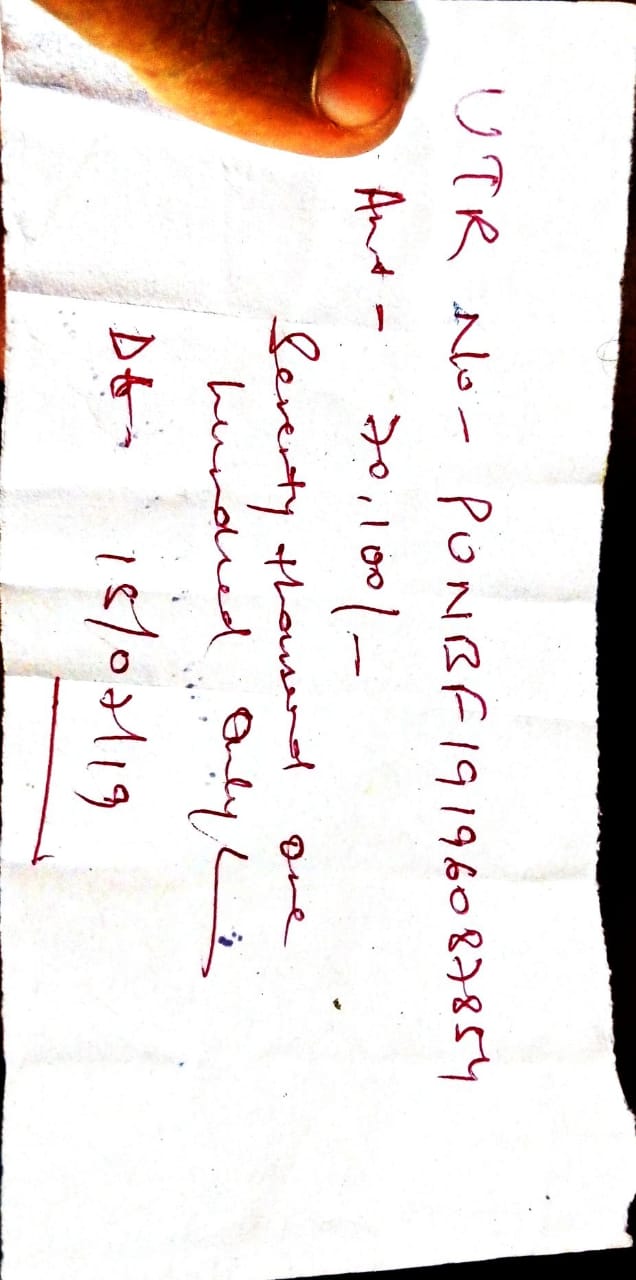 UTR No - PUNBF19196087859
Amt - 70,100/-
Seventy thousand one
hundred only/
Dt - 15/07/19